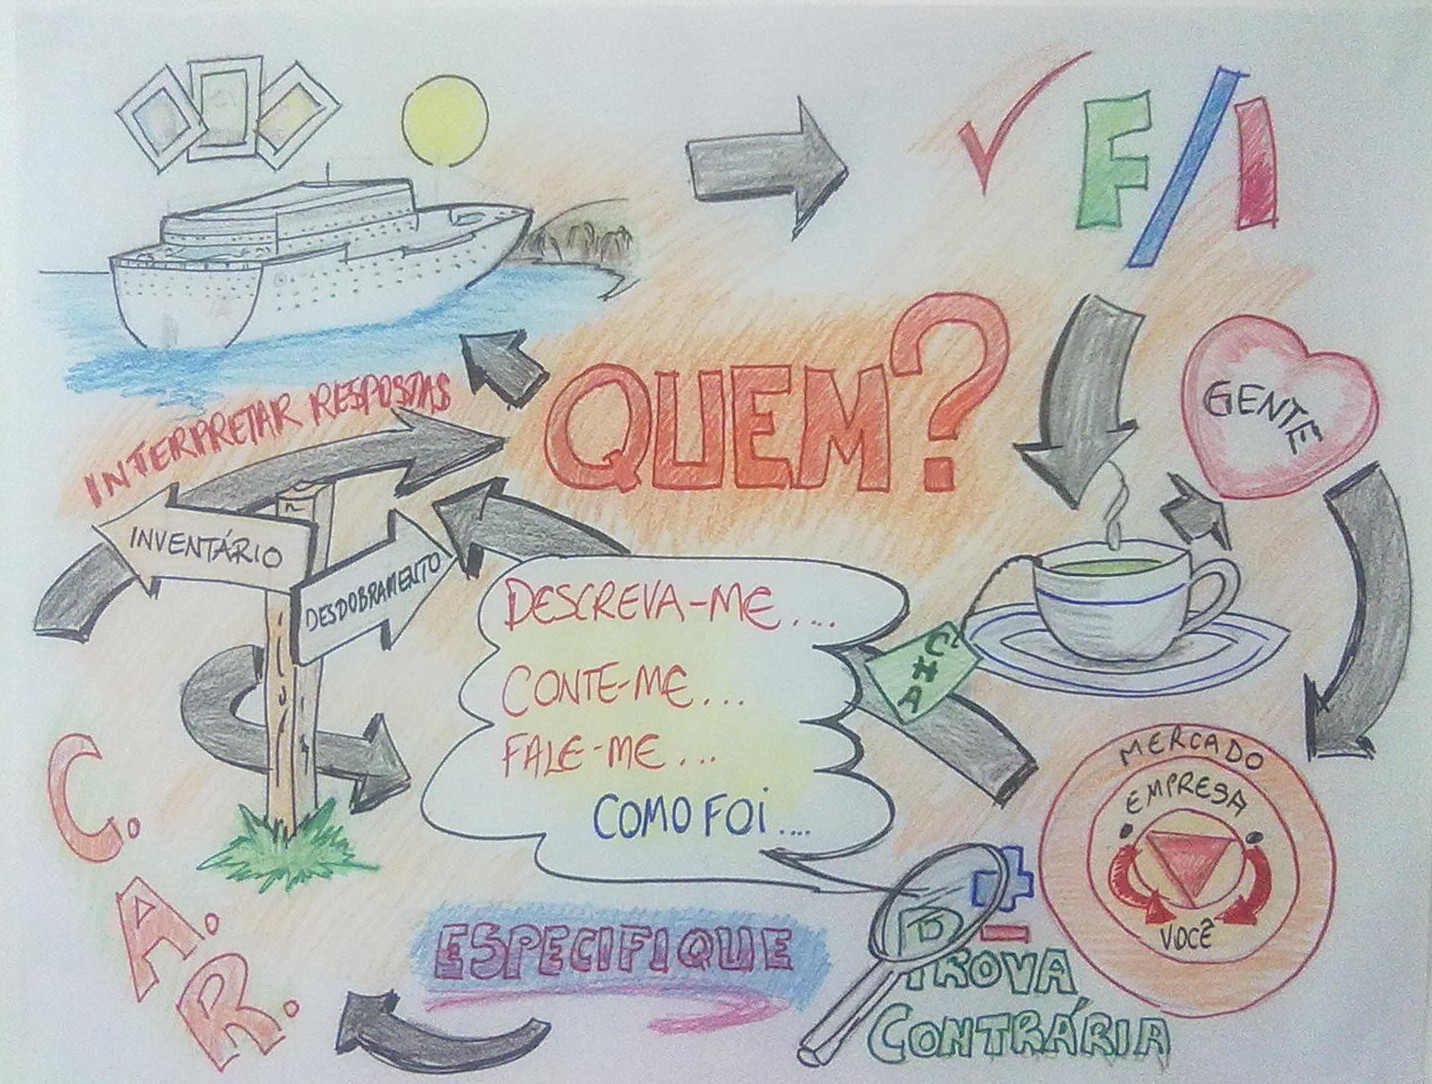 F/I
QUEM?
GENTE
INTERPRETAR RESPOSTAS
INVENTÁRIO
DESDOBRAMENTO
DESCREVA-ME....
CONTE-ME...
FALE-ME...
COMO FOI....
CHA
MERCADO
EMPRESA
VOCÊ
C.
A.
R.
ESPECIFIQUE
PROVA
CONTRÁRIA